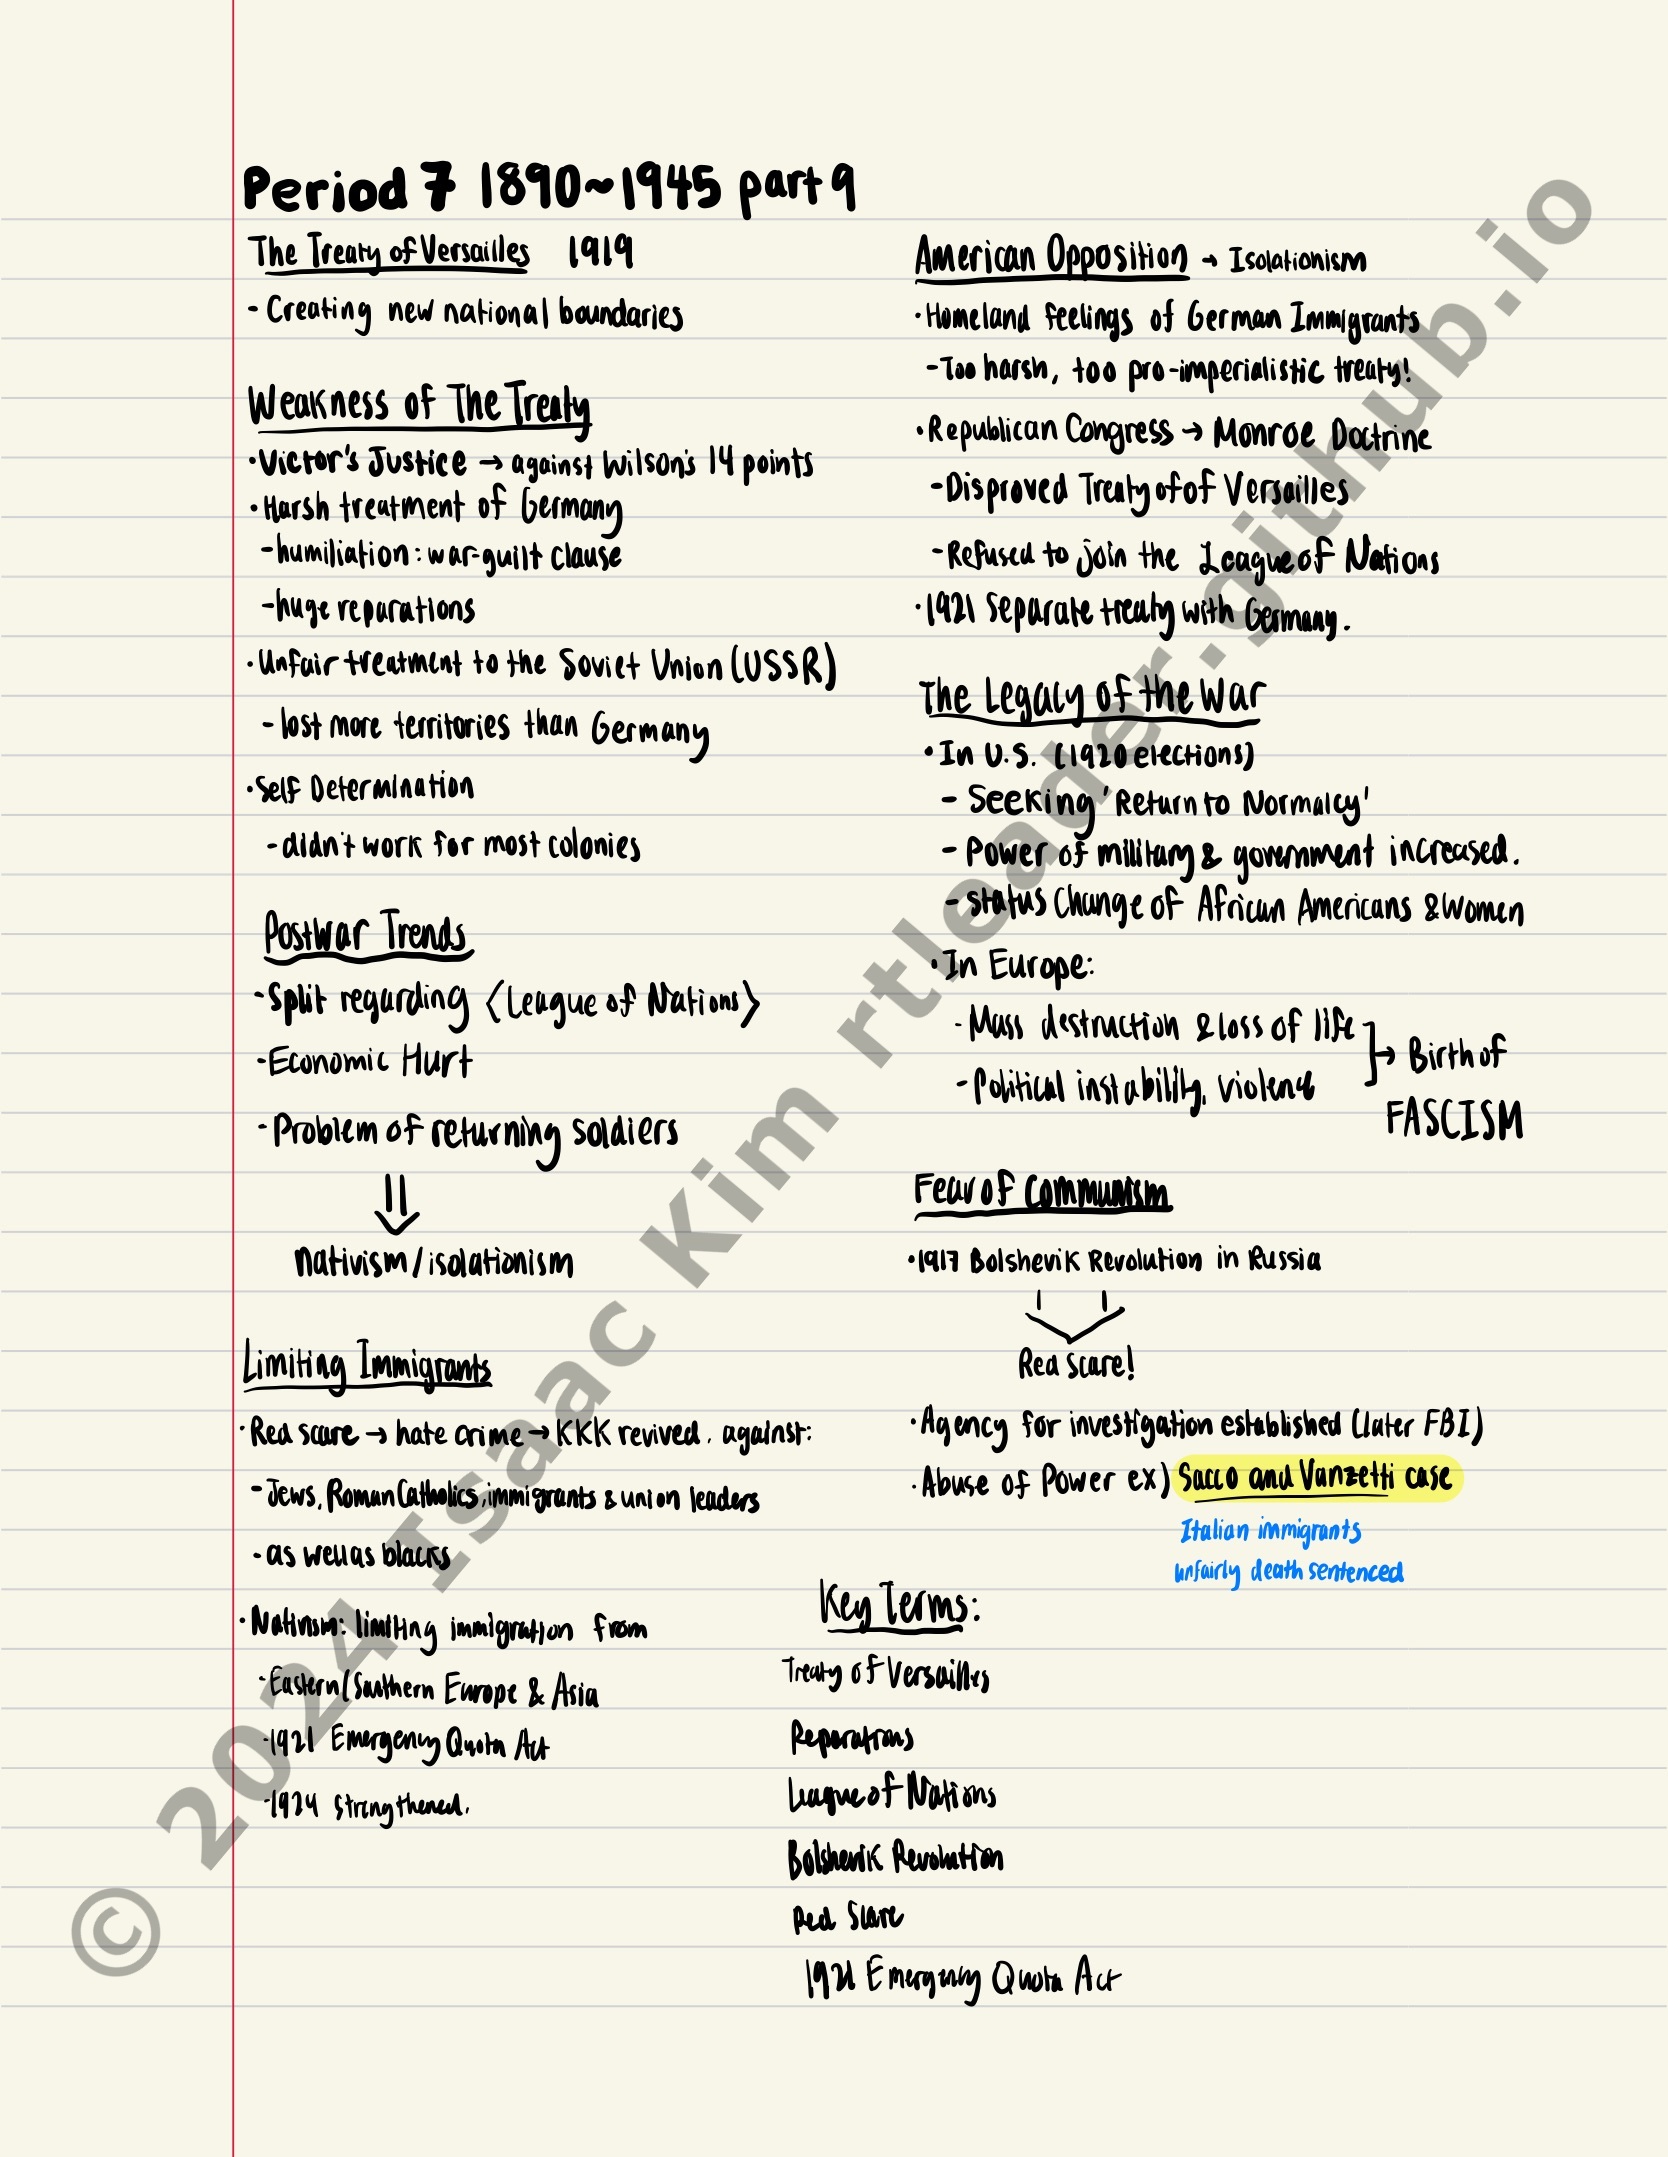 Period 7 1890~1945 part 9
The Treaty of Versailles 1919
- Creating new national boundaries
Weakness of The Treaty
·Victor's Justice → against Wilson's 14 points
·Harsh treatment of Germany
-humiliation: war-guilt clause
-huge reparations
·Unfair treatment to the Soviet Union (USSR)
- lost more territories than Germany
·Self Determination
-didn't work for most colonies
Postwar Trends
-Split regarding <League of Nations>
-Economic Hurt
-Problem of returning soldiers
⇓
nativism/isolationism
Limiting Immigrants
·Red scare → hate crime → KKK revived. against:
-Jews, Roman Catholics, immigrants & union leaders
-as well as blacks
·Nativism: limiting immigration from
-Eastern/Southern Europe & Asia
-1921 Emergency Quota Act
-1924 strengthened.
American Opposition → Isolationism
·Homeland feelings of German Immigrants
-Too harsh, too pro-imperialistic treaty!
·Republican Congress → Monroe Doctrine
-Disproved Treaty of of Versailles
-Refused to join the League of Nations
·1921 Separate treaty with Germany.
The Legacy of the War
·In U.S. (1920 elections)
- Seeking 'Return to Normalcy'
- Power of military & government increased.
- Status Change of African Americans & Women
·In Europe:
- Mass destruction & loss of life
- Political instability, violence
→ Birth of
FASCISM
Fear of communism
·1917 Bolshevik Revolution in Russia
⇓
Red Scare!
·Agency for investigation established (later FBI)
·Abuse of Power ex) Sacco and Vanzetti case
Italian immigrants
unfairly death sentenced
Key Terms:
Treaty of Versailles
Reparations
League of Nations
Bolshevik Revolution
Red Scare
1921 Emergency Quota Act
© 2024 Isaac Kim rtleader.github.io